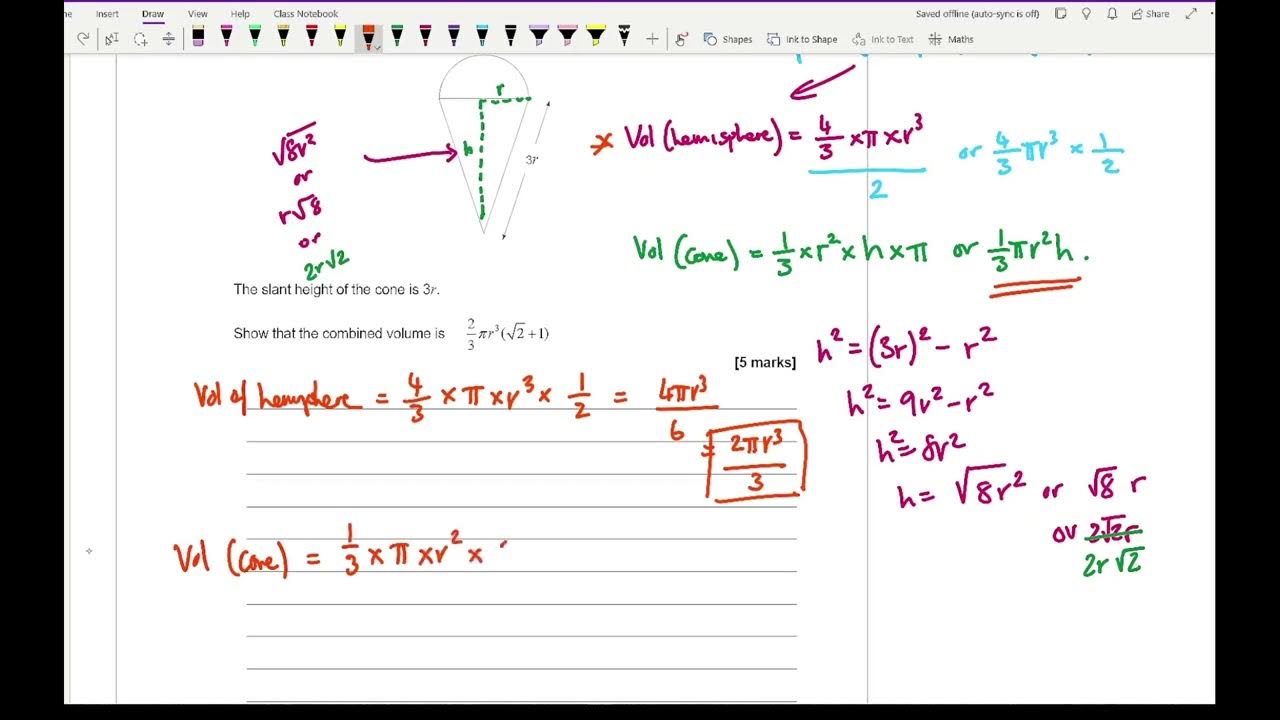 Insert Draw View Help Class Notebook Saved offline (auto-sync is off) Share
Shapes Ink to Shape Ink to Text Maths
r
h
3r
√8r²
or
r√8
or
2r√2
* Vol (hemisphere) = 4/3 × π × r³ / 2 or 4/3 πr³ × 1/2
Vol (cone) = 1/3 × r² × h × π or 1/3 πr²h.
The slant height of the cone is 3r.
Show that the combined volume is 2/3 πr³(√2+1)
[5 marks]
h² = (3r)² − r²
h² = 9r² − r²
h² = 8r²
h = √8r² or √8 r
or 2√2r
2r√2
Vol of hemsphere = 4/3 × π × r³ × 1/2 = 4πr³/6
= 2πr³/3
Vol (cone) = 1/3 × π × r² ×